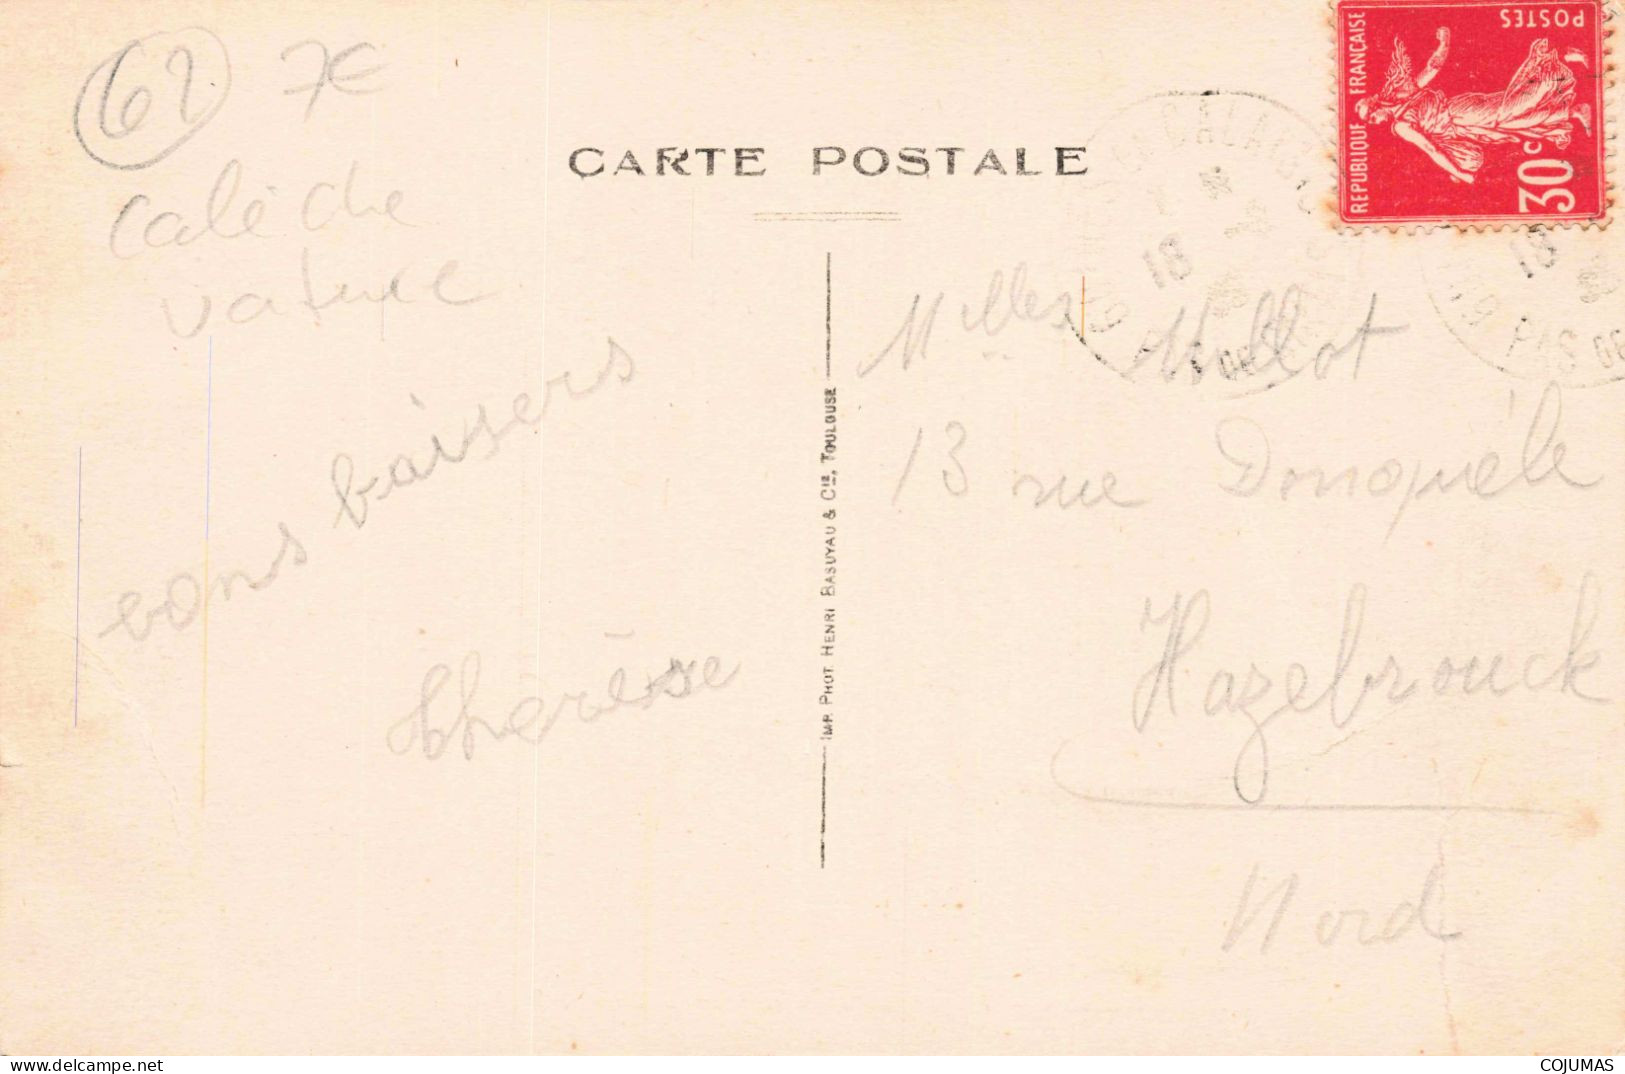 62 7€
calèche
vature
CARTE POSTALE
bons baisers
thérèse
IMP. PHOT. HENRI BASUYAU & CIE, TOULOUSE
REPUBLIQUE FRANÇAISE
POSTES
30c
CALAIS
18
PAS DE
18
PAS DE
Melles Millot
13 rue
Hazebrouck
Nord
www.delcampe.net
COJUMAS